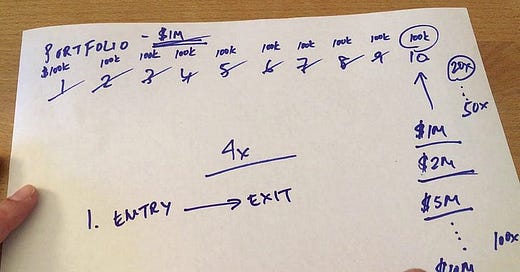 PORTFOLIO - $1M
$100k 100k 100k 100k 100k 100k 100k 100k 100k 100k
1 2 3 4 5 6 7 8 9 10
20x
50x
$1M
4x
$2M
1. ENTRY → EXIT
$5M
100x